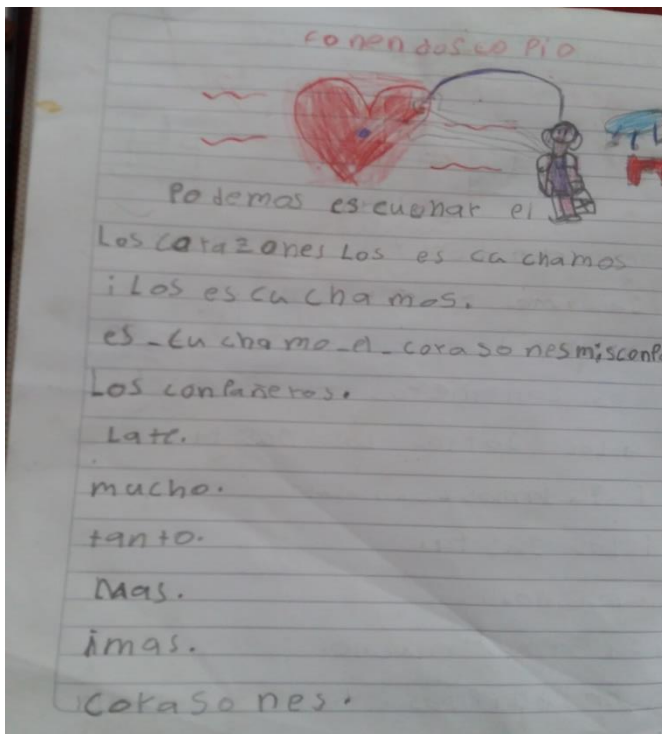 conendoscopio
Podemos escuchar el
Los corazones Los es ca chamos
i Los es cu cha mos.
es-cu chamo-el-coraso nesmisconpa
Los conpañeros.
Late.
mucho.
tanto.
Mas.
imas.
coraso nes.